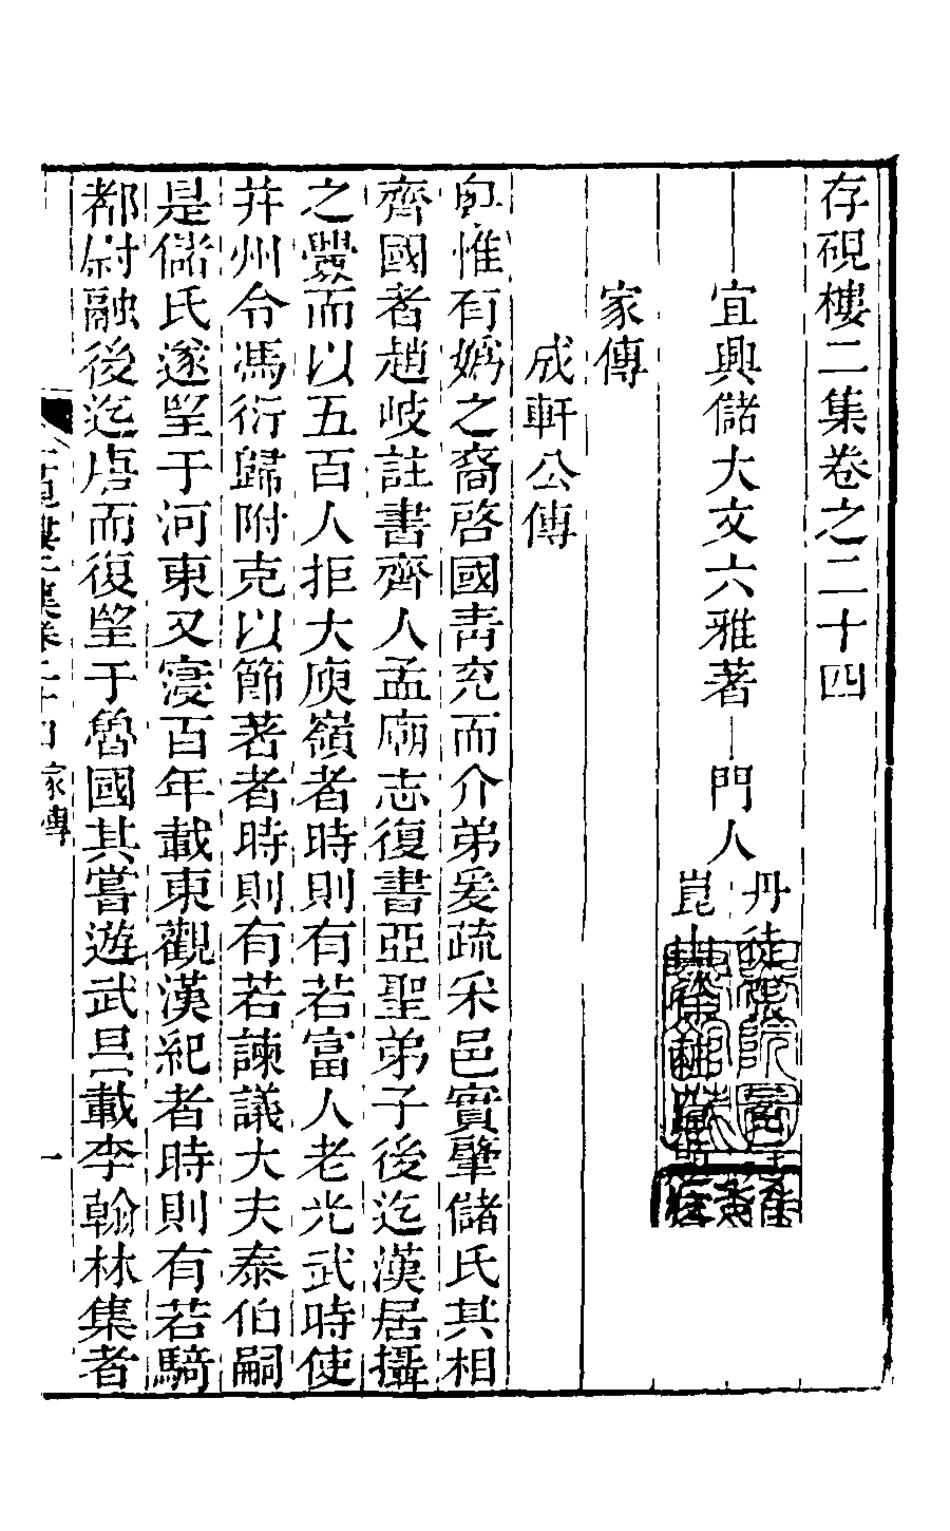 存硯樓二集卷之二十四
宜興儲大文六雅著 門人
丹徒張
崑山徐
家傳
成軒公傳
惟有嬀之裔啓國靑兖而介弟爰疏采邑實肇儲氏其相
齊國者趙岐註書齊人孟廟志復書亞聖弟子後迄漢居攝
之釁而以五百人拒大庾嶺者時則有若富人老光武時使
幷州令馮衍歸附克以節著者時則有若諫議大夫泰伯嗣
是儲氏遂望于河東又寖百年載東觀漢紀者時則有若騎
都尉融後迄唐而復望于魯國其嘗遊武昌載李翰林集者
樓二集卷二十四 家傳 一